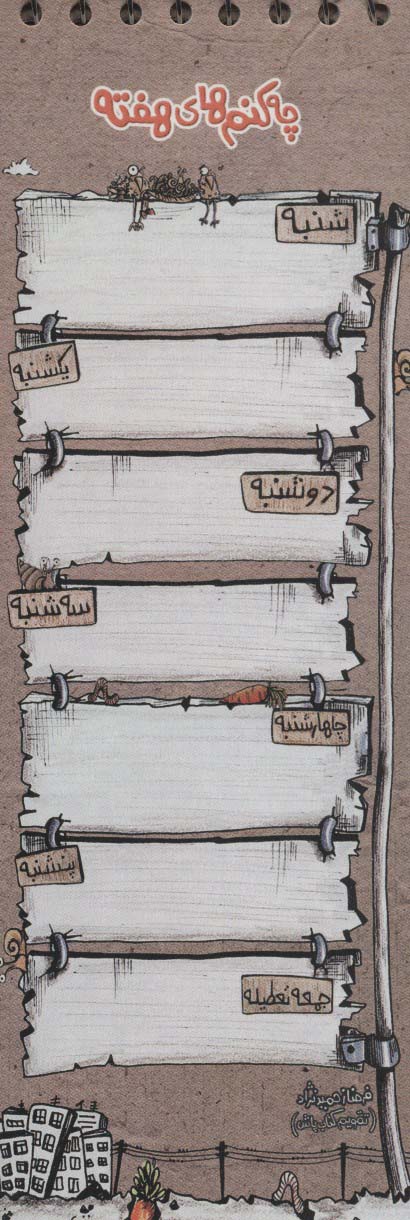 چه کنم های هفته
شنبه
یکشنبه
دوشنبه
سه شنبه
چاهارشنبه
پنشنبه
جمعه تعطیله
فرناز حمیدنژاد
(تقویم کتاب باش)